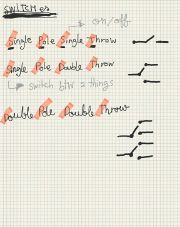 SWITCHES
→ on/off
Single Pole Single Throw
Single Pole Double Throw
↳ switch btw 2 things
Double Pole Double Throw